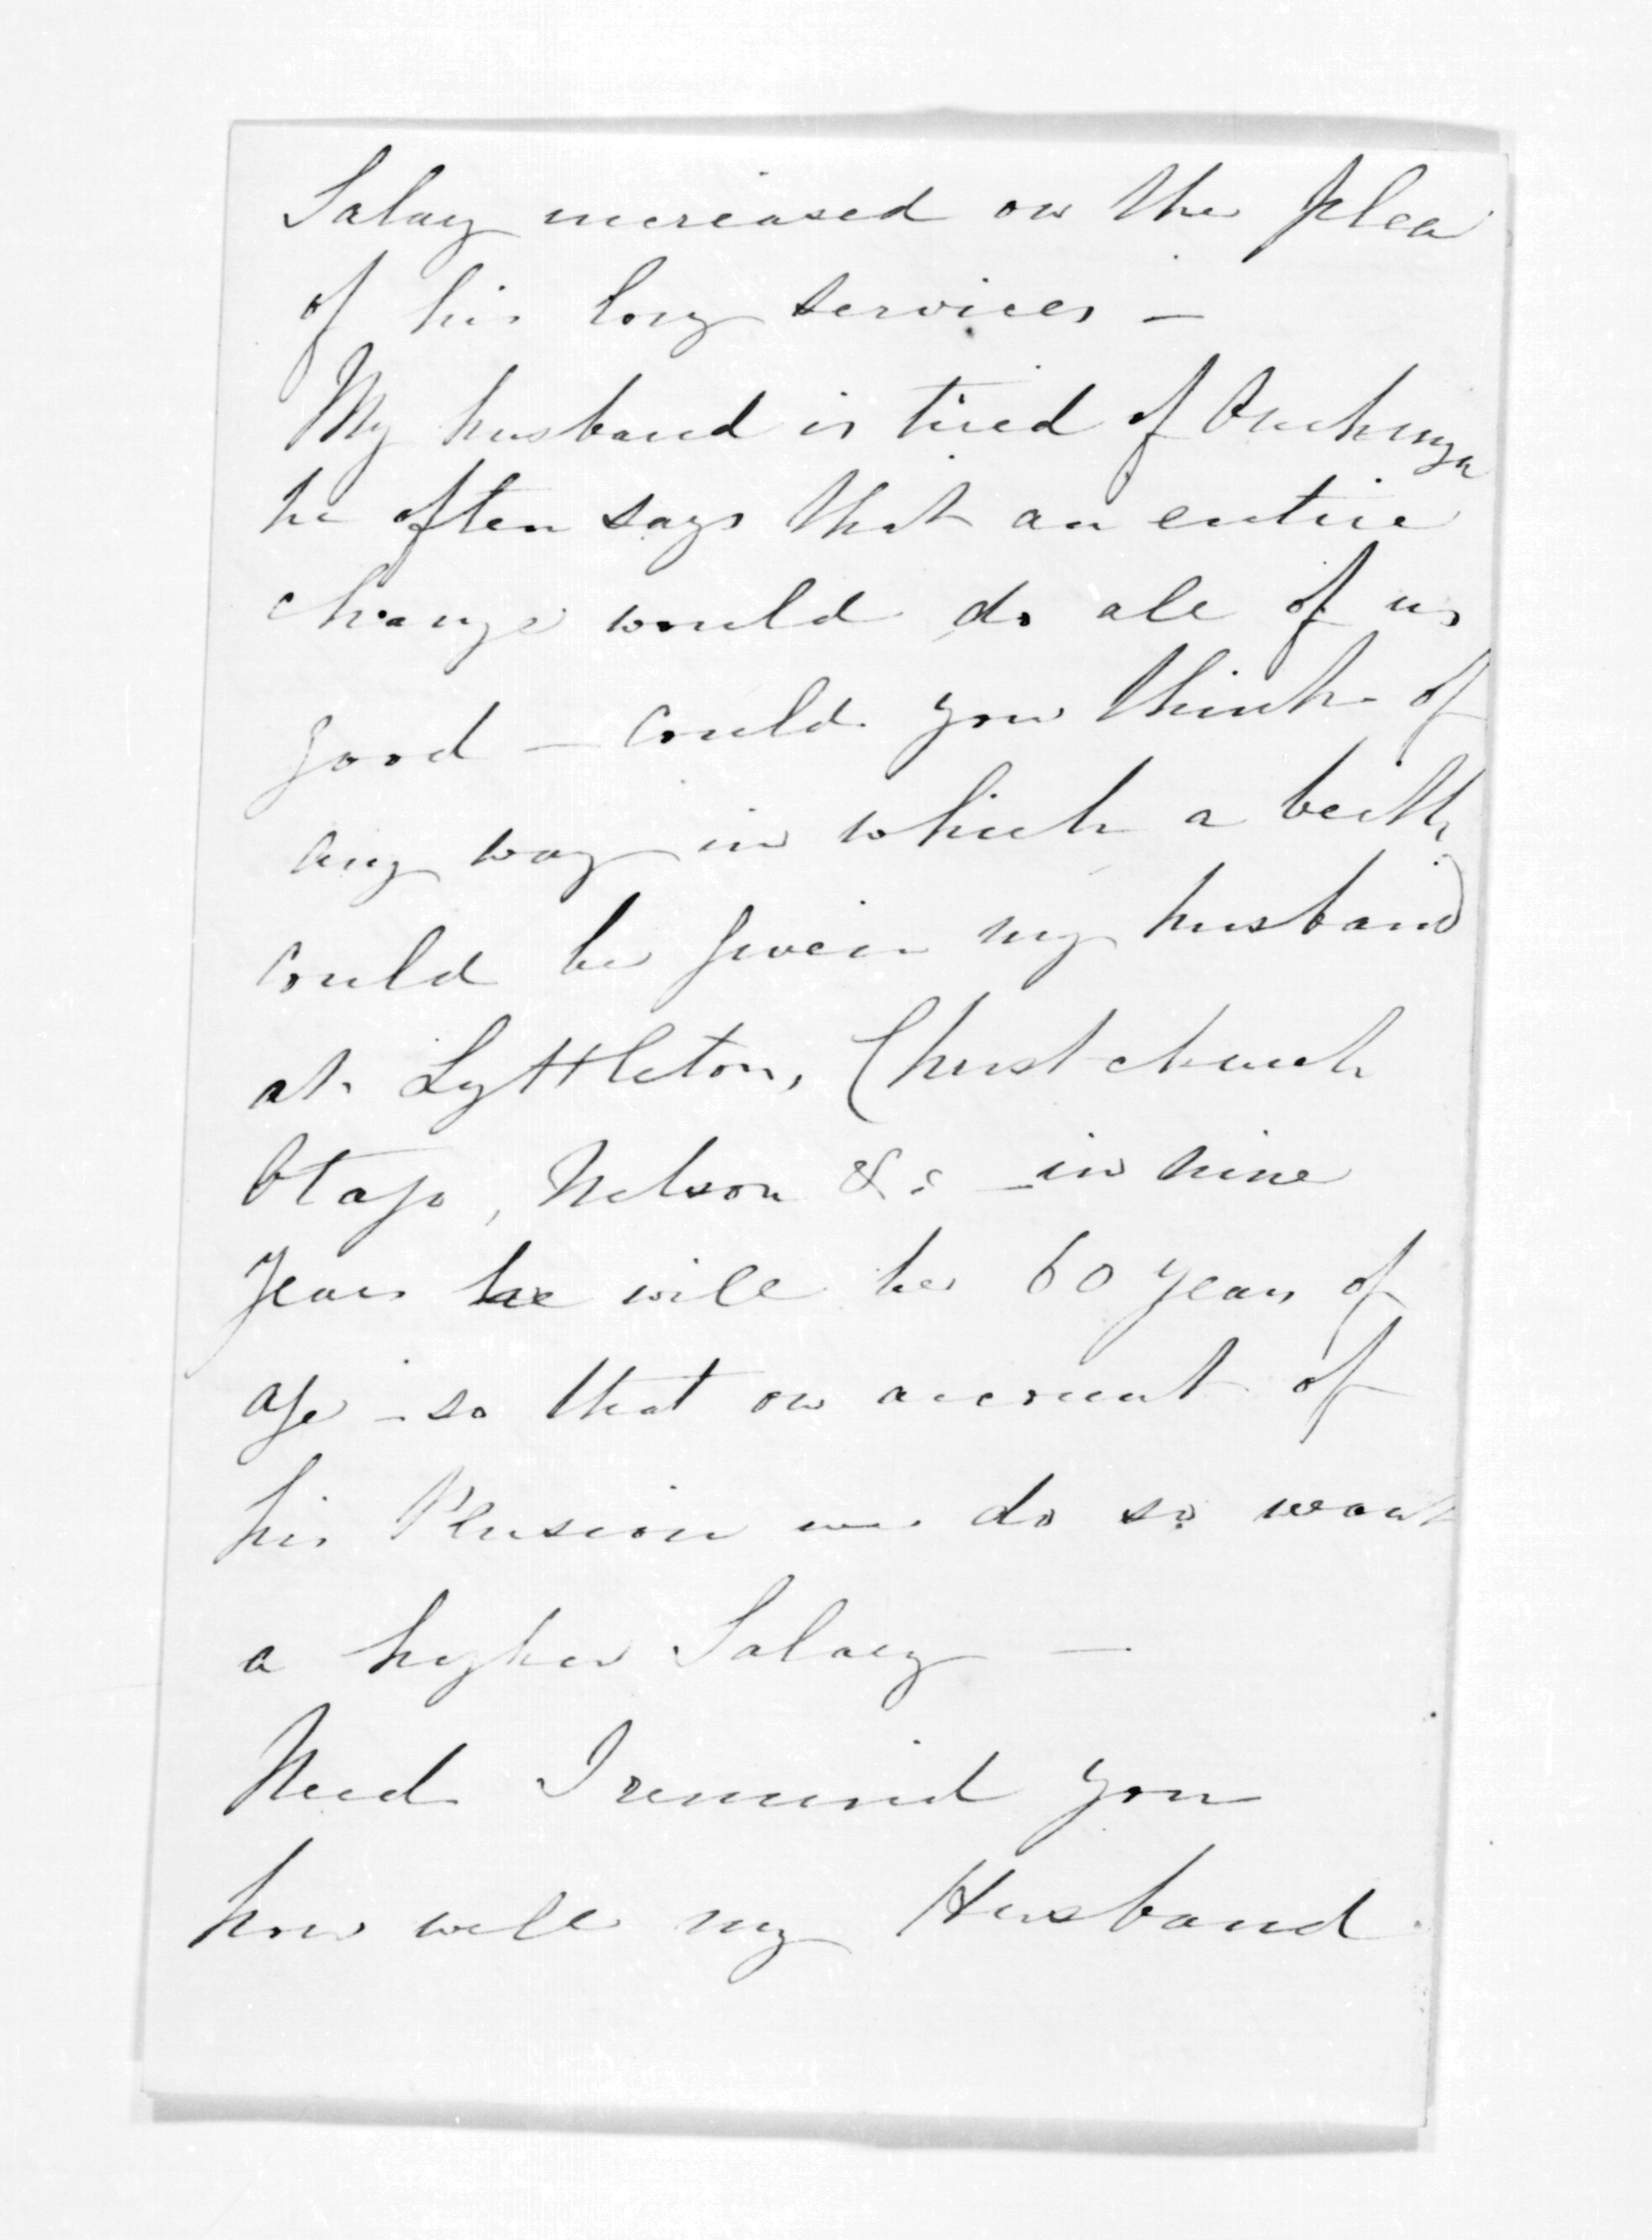 Salary increased on the plea
of his long services -
My husband is tired of Onehunga
he often says that an entire
change would do all of us
good - Could you think of
any way in which a berth
could be given my husband
at Lyttleton, Christchurch
Otago, Nelson &c - in nine
years he will be 60 years of
age - so that on account of
his Pension we do so want
a higher Salary -
Need I remind you
how well my Husband